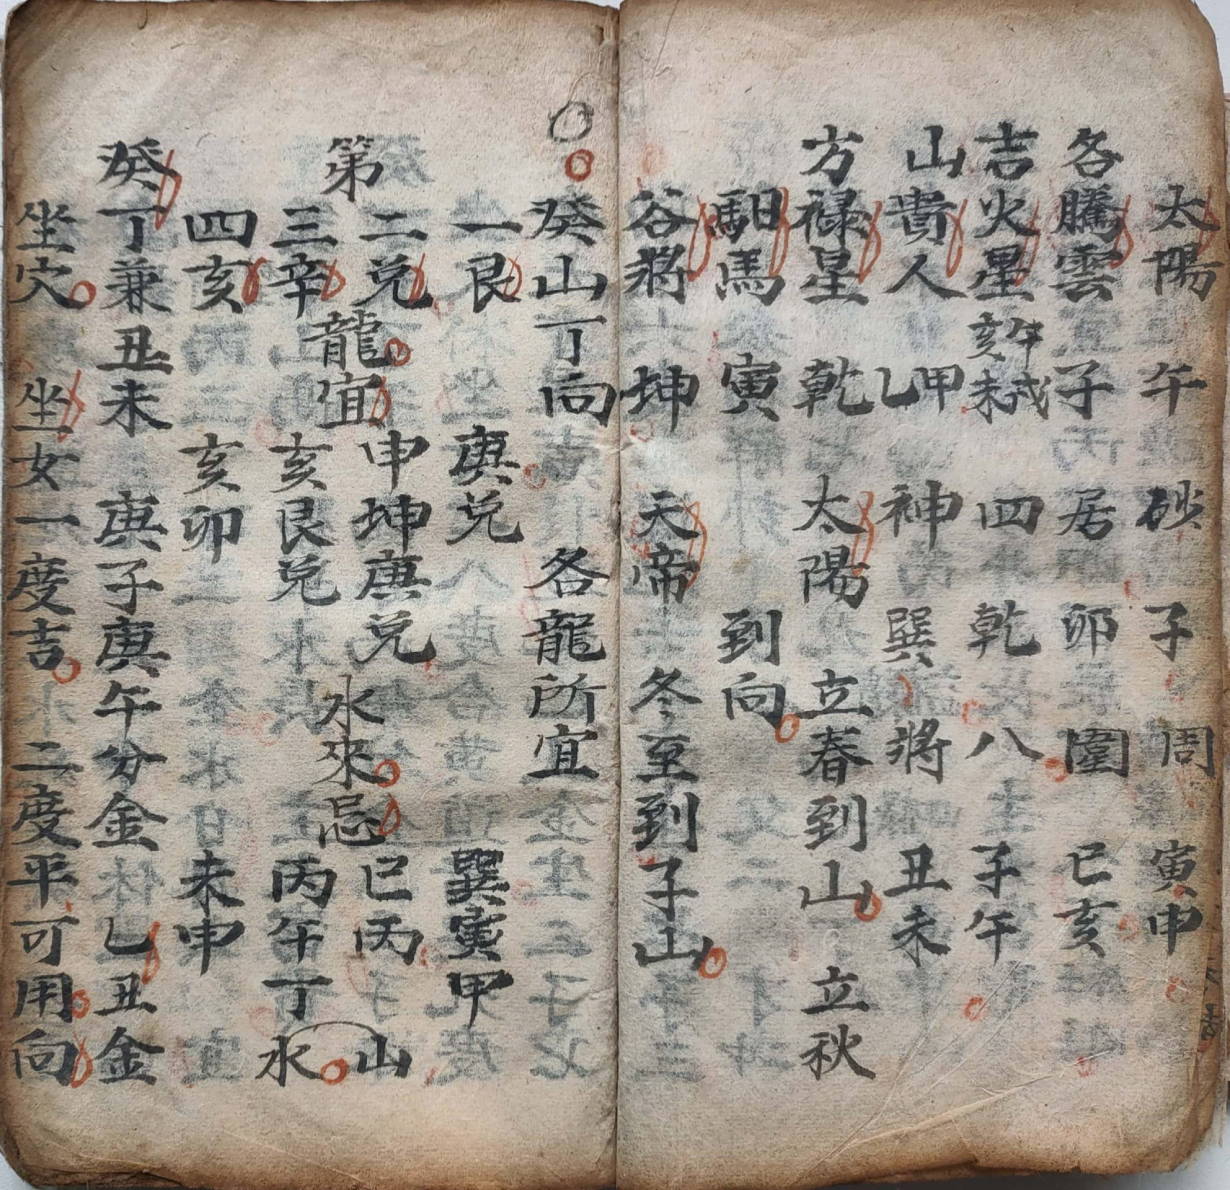 太陽 午 砂 子 周 寅申
各騰雲 子 居 卯 圍 巳亥
吉火星 午戌亥未 四 乾 八 子午
山貴人 甲乙 神 巽 將 丑未
方祿星 乾 太陽 立春到山 立秋
馹馬 寅 到向
谷將 坤 天帝 冬至到子山
癸山丁向 各龍所宜
一艮 庚兌 巽寅甲
二兌 申坤庚兌 巳丙
第 龍宜 水來忌 山
三辛 亥艮兌 丙午丁 水
四亥 亥卯 未申
癸丁兼丑未 庚子庚午分金 乙丑金
坐穴 坐女一度吉 二度平可用向